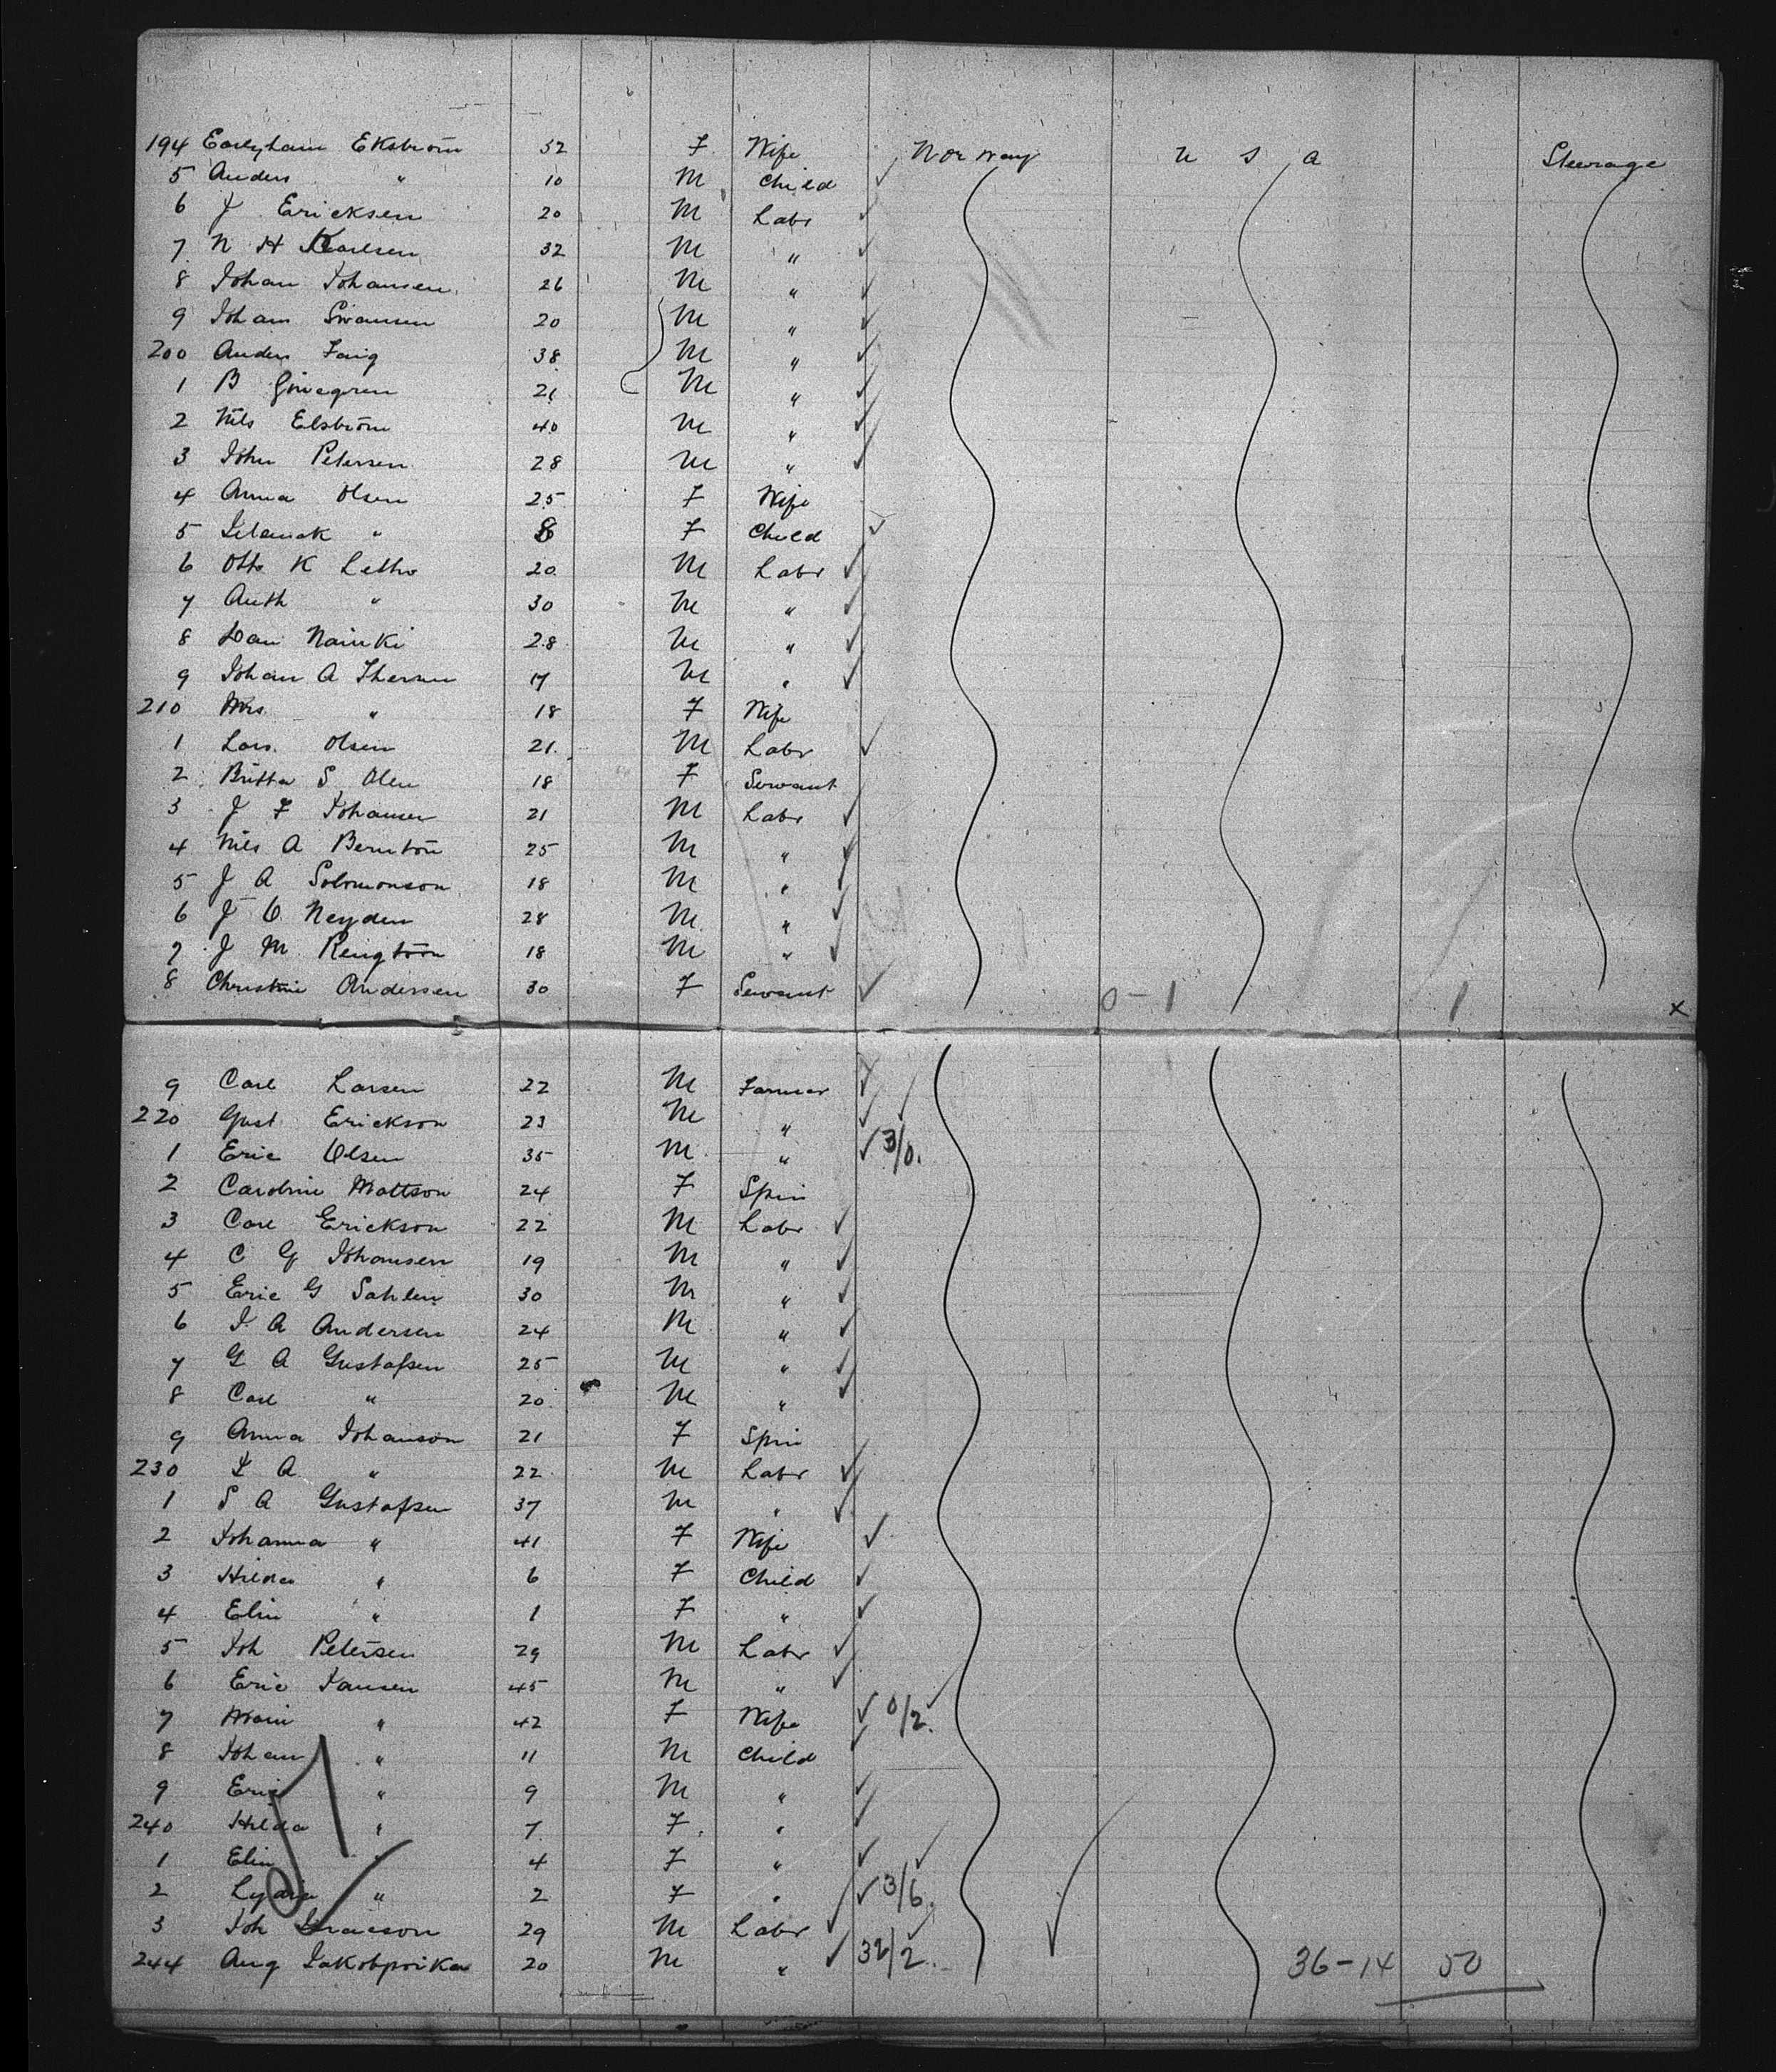 194 Ekström 32 F Wife Norway U S A Steerage
5 Anders " 10 M Child
6 J Ericksen 20 M Labr
7 N H Karlsen 32 M "
8 Johan Johansen 26 M "
9 Johan Swansen 20 M "
200 Anders 38 M "
1 B 21 M "
2 Nils Elström 40 M "
3 John Petersen 28 M "
4 Anna Olsen 25 F Wife
5 " 8 F Child
6 Otto K Letho 20 M Labr
7 Anth " 30 M "
8 28 M "
9 Johan A 17 M "
210 Mrs " 18 F Wife
1 Lars Olsen 21 M Labr
2 Britta S Olen 18 F Servant
3 J F Johansen 21 M Labr
4 Nils A 25 M "
5 J A Solomonson 18 M "
6 J O Neyden 28 M "
7 J M 18 M "
8 Christine Andersen 30 F Servant 0-1 1 x
9 Carl Larsen 22 M Farmer
220 Gust Erickson 23 M "
1 Eric Olsen 35 M " 3/0.
2 Caroline Mattson 24 F Spin
3 Carl Erickson 22 M Labr
4 C G Johansen 19 M "
5 Eric G Sahlen 30 M "
6 J A Andersen 24 M "
7 G A Gustafsen 25 M "
8 Carl " 20 M "
9 Anna Johanson 21 F Spin
230 J A " 22 M Labr
1 S A Gustafsen 37 M "
2 Johanna " 41 F Wife
3 Hilda " 6 F Child
4 Elin " 1 F "
5 Joh Petersen 29 M Labr
6 Eric Jansen 45 M "
7 " 42 F Wife 0/2.
8 Johan " 11 M Child
9 Eric " 9 M "
240 Hilda " 7 F "
1 Elin " 4 F "
2 Lydia " 2 F " 3/6
3 Joh 29 M Labr
244 Aug 20 M " 32/2. 36-14 50